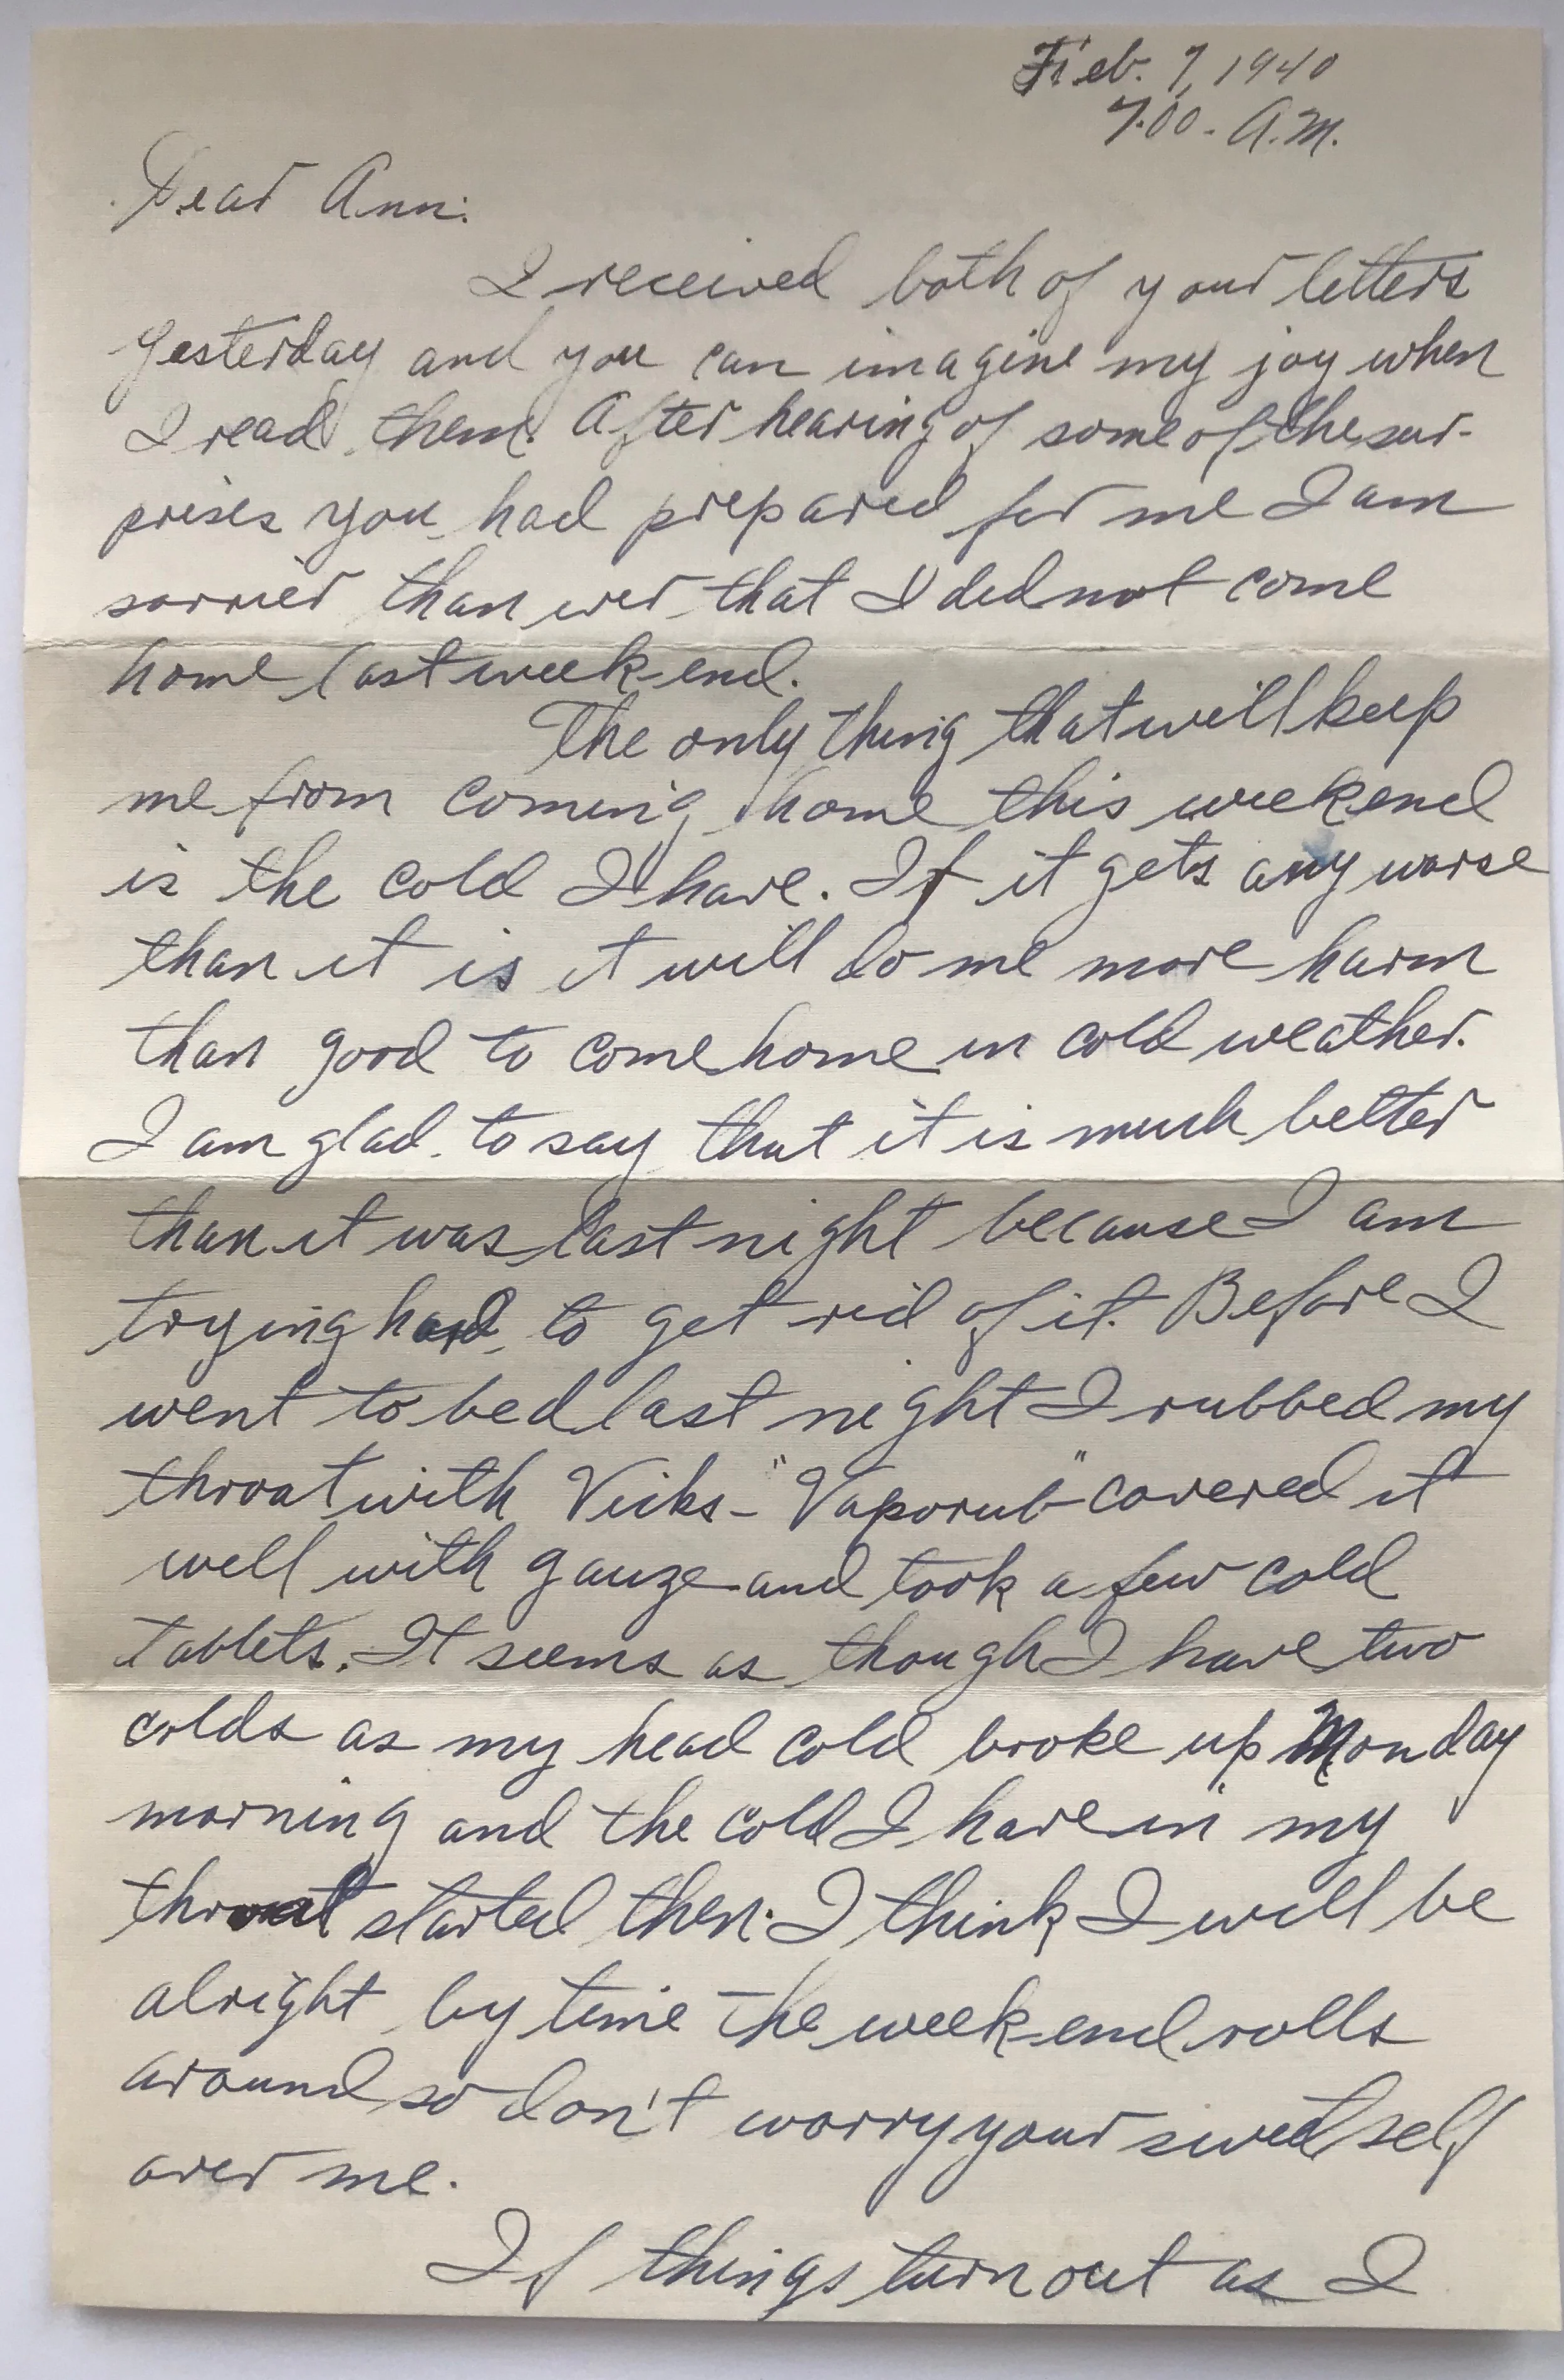 Feb. 7, 1940
7.00. A.M.
Dear Ann:
I received both of your letters
yesterday and you can imagine my joy when
I read them. After hearing of some of the sur-
prises you had prepared for me I am
sorrier than ever that I did not come
home last week-end.
The only thing that will keep
me from coming home this weekend
is the cold I have. If it gets any worse
than it is it will do me more harm
than good to come home in cold weather.
I am glad to say that it is much better
than it was last night because I am
trying hard to get rid of it. Before I
went to bed last night I rubbed my
throat with Vicks-"Vaporub" covered it
well with gauze and took a few cold
tablets. It seems as though I have two
colds as my head cold broke up Monday
morning and the cold I have in my
throat started then. I think I will be
alright by time the week-end rolls
around so don't worry your sweet self
over me.
If things turn out as I